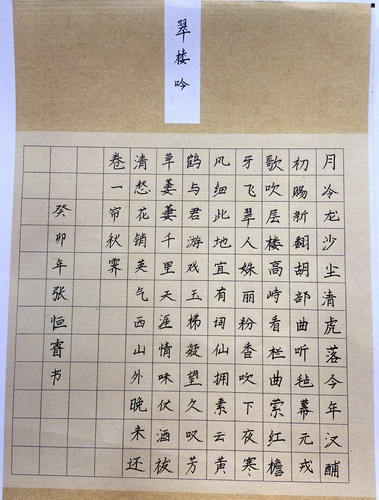 翠楼吟
月冷龙沙尘清虎落今年汉酺
初赐新翻胡部曲听毡幕元戎
歌吹层楼高峙看栏曲萦红檐
牙飞翠人姝丽粉香吹下夜寒
风细此地宜有词仙拥素云黄
鹤与君游戏玉梯凝望久叹芳
草萋萋千里天涯情味仗酒祓
清愁花销英气西山外晚来还
卷一帘秋霁
癸卯年张恒书